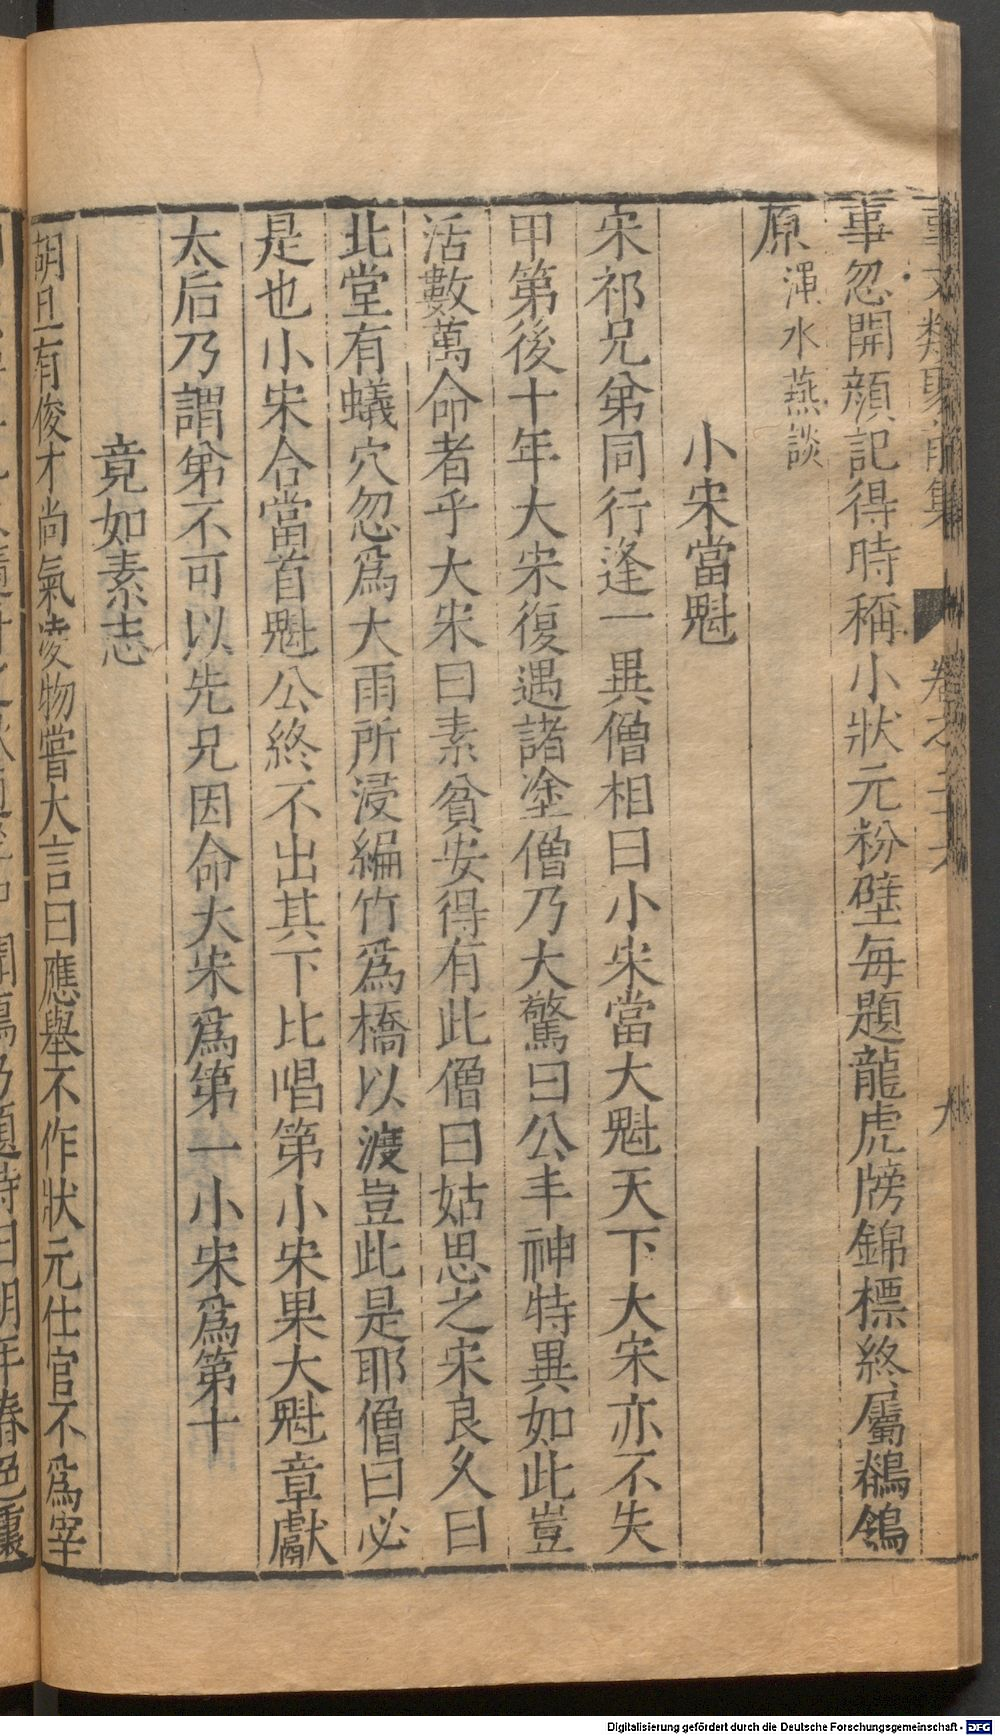 事忽開顔記得時稱小狀元粉壁每題龍虎牓錦標終屬鶺鴒
原澠水燕談
小宋當魁
宋祁兄弟同行逢一異僧相曰小宋當大魁天下大宋亦不失
甲第後十年大宋復遇諸塗僧乃大驚曰公丰神特異如此豈
活數萬命者乎大宋曰素貧安得有此僧曰姑思之宋良久曰
北堂有蟻穴忽爲大雨所浸編竹爲橋以渡豈此是耶僧曰必
是也小宋合當首魁公終不出其下比唱第小宋果大魁章獻
太后乃謂弟不可以先兄因命大宋爲第一小宋爲第十
竟如素志
胡旦有俊才尚氣凌物嘗大言曰應舉不作狀元仕官不爲宰
Digitalisierung gefördert durch die Deutsche Forschungsgemeinschaft - DFG